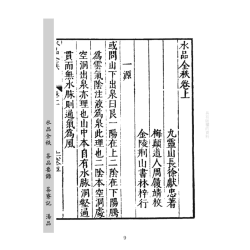 水品全秩卷上
九靈山長徐獻忠著
梅顛道人周履靖校
金陵荆山書林梓行
一源
或問山下出泉曰艮一陽在上二陰在下陽騰
為雲氣陰注液為泉此理也二陰本空洞處
空洞出泉亦理也山中本自有水脉洞壑通
貫而無水脉則通氣為風
水品全秩 茶品要錄 茶寮記 湯品
9